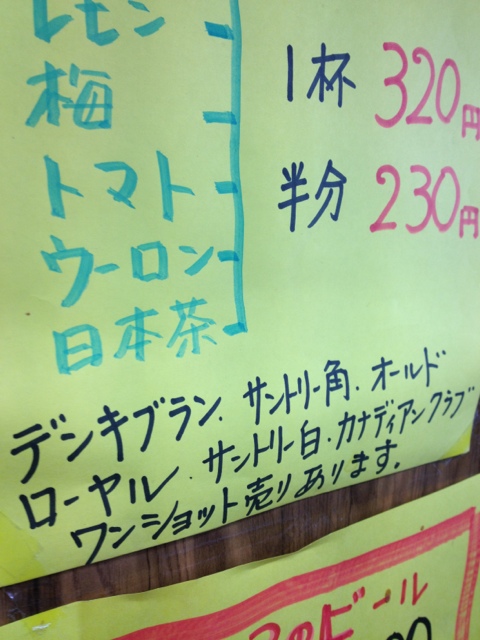 レモン
梅
トマト
ウーロン
日本茶
1杯 320円
半分 230円
デンキブラン. サントリー角. オールド
ローヤル. サントリー白. カナディアンクラブ
ワンショット売りあります.
ビール